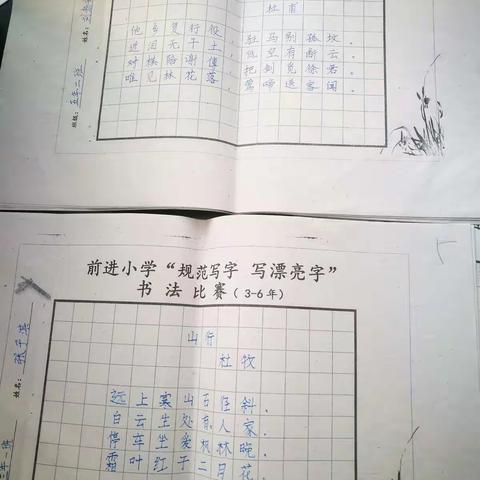 杜甫
他乡复行役，驻马别孤坟。
进泪无干土，低空有断云。
对棋陪谢傅，把剑觅徐君。
唯见林花落，莺啼送客闻。
姓名：
班级：五年二班
前进小学“规范写字 写漂亮字”
书法比赛（3-6年）
山行
杜牧
远上寒山石径斜，
白云生处有人家。
停车坐爱枫林晚，
霜叶红于二月花
姓名：张子
年一班